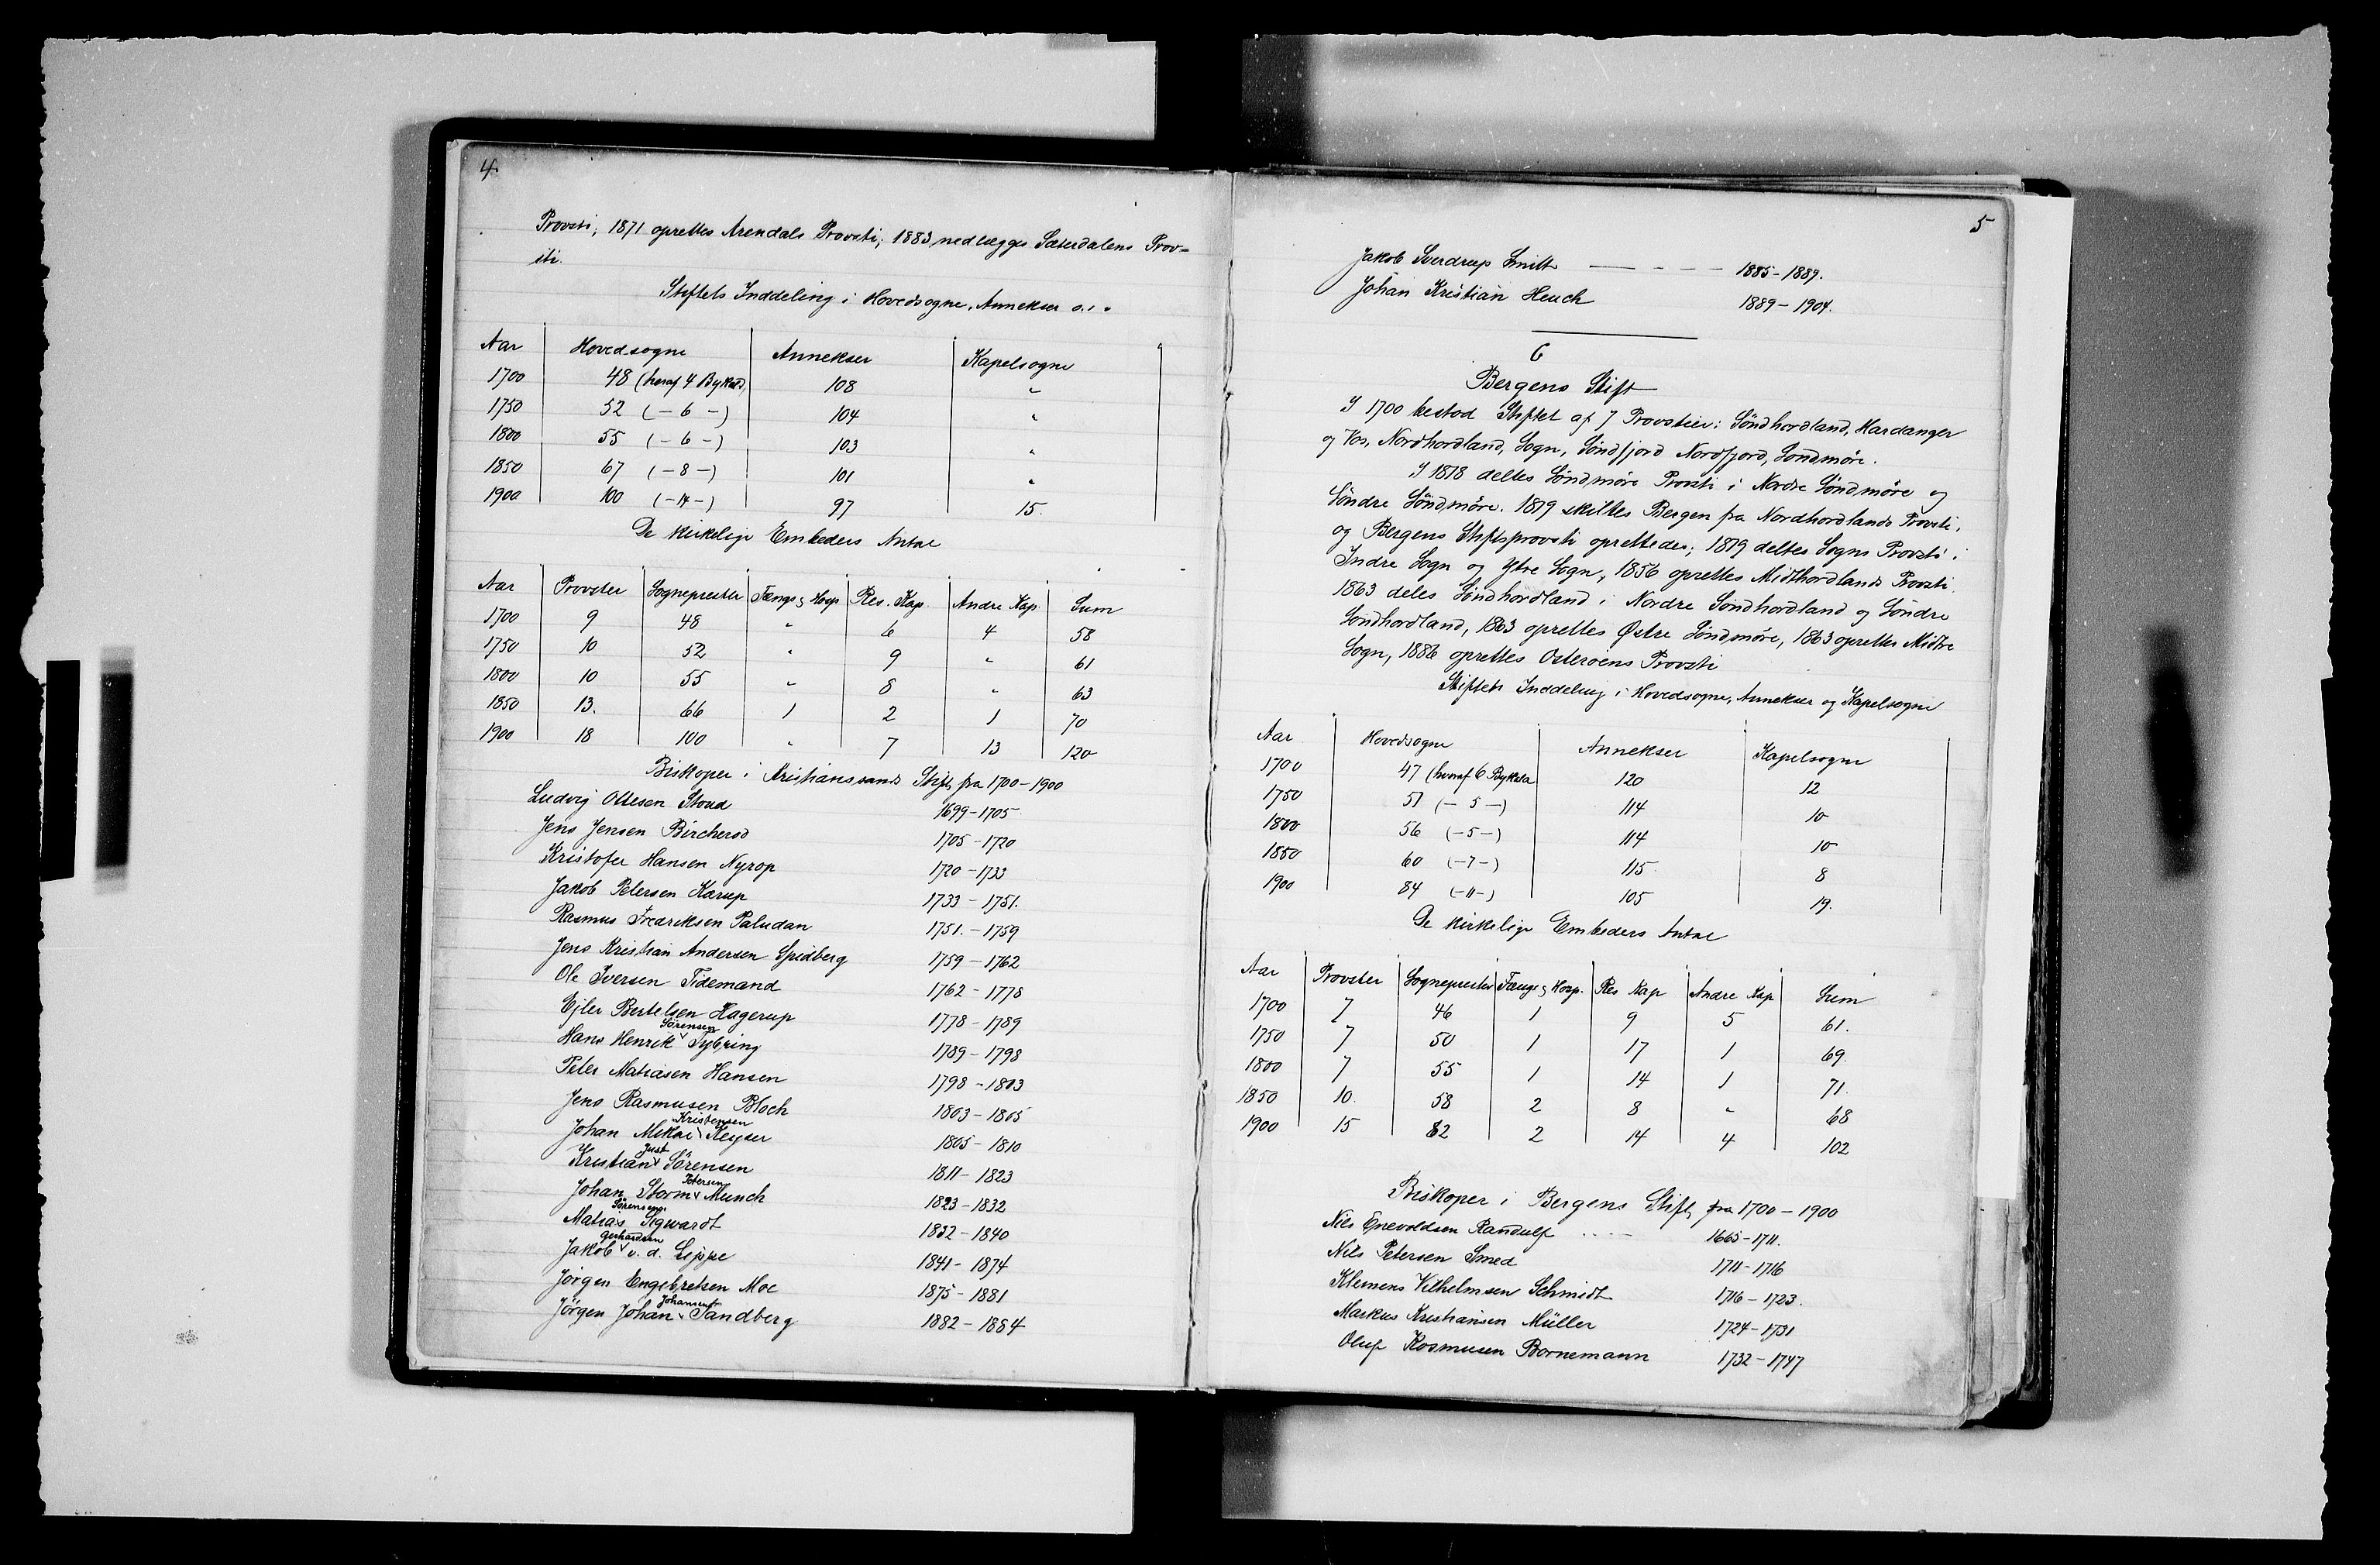 4.
Provsti; 1871 oprettes Arendals Provsti; 1883 nedlægges Sæterdalens Prov-
sti.
Stiftets Inddeling i Hovedsogne, Annekser o.s.v.
Aar Hovedsogne Annekser Kapelsogne
1700 48 (heraf 4 Bykald) 108 "
1750 52 (- 6 -) 104 "
1800 55 (- 6 -) 103 "
1850 67 (- 8 -) 101 "
1900 100 (- 14 -) 97 15.
De kirkelige Embeders Antal
Aar Provster Sogneprester Fængs. & Hosp Res. Kap. Andre Kap. Sum
1700 9 48 " 6 4 58
1750 10 52 " 9 " 61
1800 10 55 " 8 " 63
1850 13. 66 1 2 1 70
1900 18 100 " 7 13 120
Biskoper i Kristianssands Stift fra 1700-1900
Ludvig Ottesen Stoud 1699-1705
Jens Jensen Bircherod 1705-1720
Kristofer Hansen Nyrop 1720-1733
Jakob Petersen Kærup 1733-1751.
Rasmus Fredriksen Paludan 1751.-1759
Jens Kristian Andersen Spidberg 1759-1762
Ole Iversen Tidemand 1762-1778
Ejler Bertelsen Hagerup 1778-1789
Hans Henrik Sörensen Tybring 1789-1798
Peter Matiasen Hansen 1798-1803
Jens Rasmusen Bloch 1803-1805
Johan Mikael Kristensen Keyser 1805-1810
Kristian Just Sörensen 1811-1823
Johan Storm Petersen Munch 1823-1832
Matias Sörensen Sigwardt 1832-1840
Jakob Gerhardsen v. d. Lippe 1841-1874
Jörgen Engebretsen Moe 1875-1881
Jörgen Johan Johansen Sandberg 1882-1884
5
Jakob Sverdrup Smitt 1885-1889.
Johan Kristian Heuch 1889-1904.
6
Bergens Stift
I 1700 bestod Stiftet af 7 Provstier: Söndhordland, Hardanger
og Vos, Nordhordland, Sogn, Söndfjord Nordfjord, Söndmöre.
I 1818 deltes Söndmöre Provsti i Nordre Söndmöre og
Söndre Söndmöre. 1819 skiltes Bergen fra Nordhordlands Provsti,
og Bergens Stiftsprovsti oprettedes; 1819 deltes Sogns Provsti i
Indre Sogn og Ytre Sogn, 1856 oprettes Midthordlands Provsti.
1863 deles Söndhordland i Nordre Söndhordland og Söndre
Söndhordland, 1863 oprettes Østre Söndmöre, 1863 oprettes Midtre
Sogn, 1886 oprettes Osteröens Provsti
Stiftets Inddeling i Hovedsogne, Annekser og Kapelsogne
Aar Hovedsogne Annekser Kapelsogne
1700 47 (hvoraf 6 Bykald 120 12
1750 51 (- 5 -) 114 10
1800 56 (- 5 -) 114 10
1850 60 (- 7 -) 115. 8
1900 84 (- 11 -) 105 19.
De kirkelige Embeders Antal
Aar Provster Sogneprester Fængs. & Hosp. Res Kap Andre Kap Sum
1700 7 46 1 9 5 61.
1750 7 50 1 17 1 69.
1800 7 55 1 14 1 71.
1850 10. 58 2 8 " 68
1900 15 82 2 14 4 102
Biskoper i Bergens Stift fra 1700-1900
Nils Enevoldsen Randulf 1665-1711.
Nils Petersen Smed 1711-1716
Klemens Vilhelmsen Schmidt 1716-1723.
Markus Kristiansen Müller 1724-1731
Oluf Rosmusen Bornemann 1732-1747